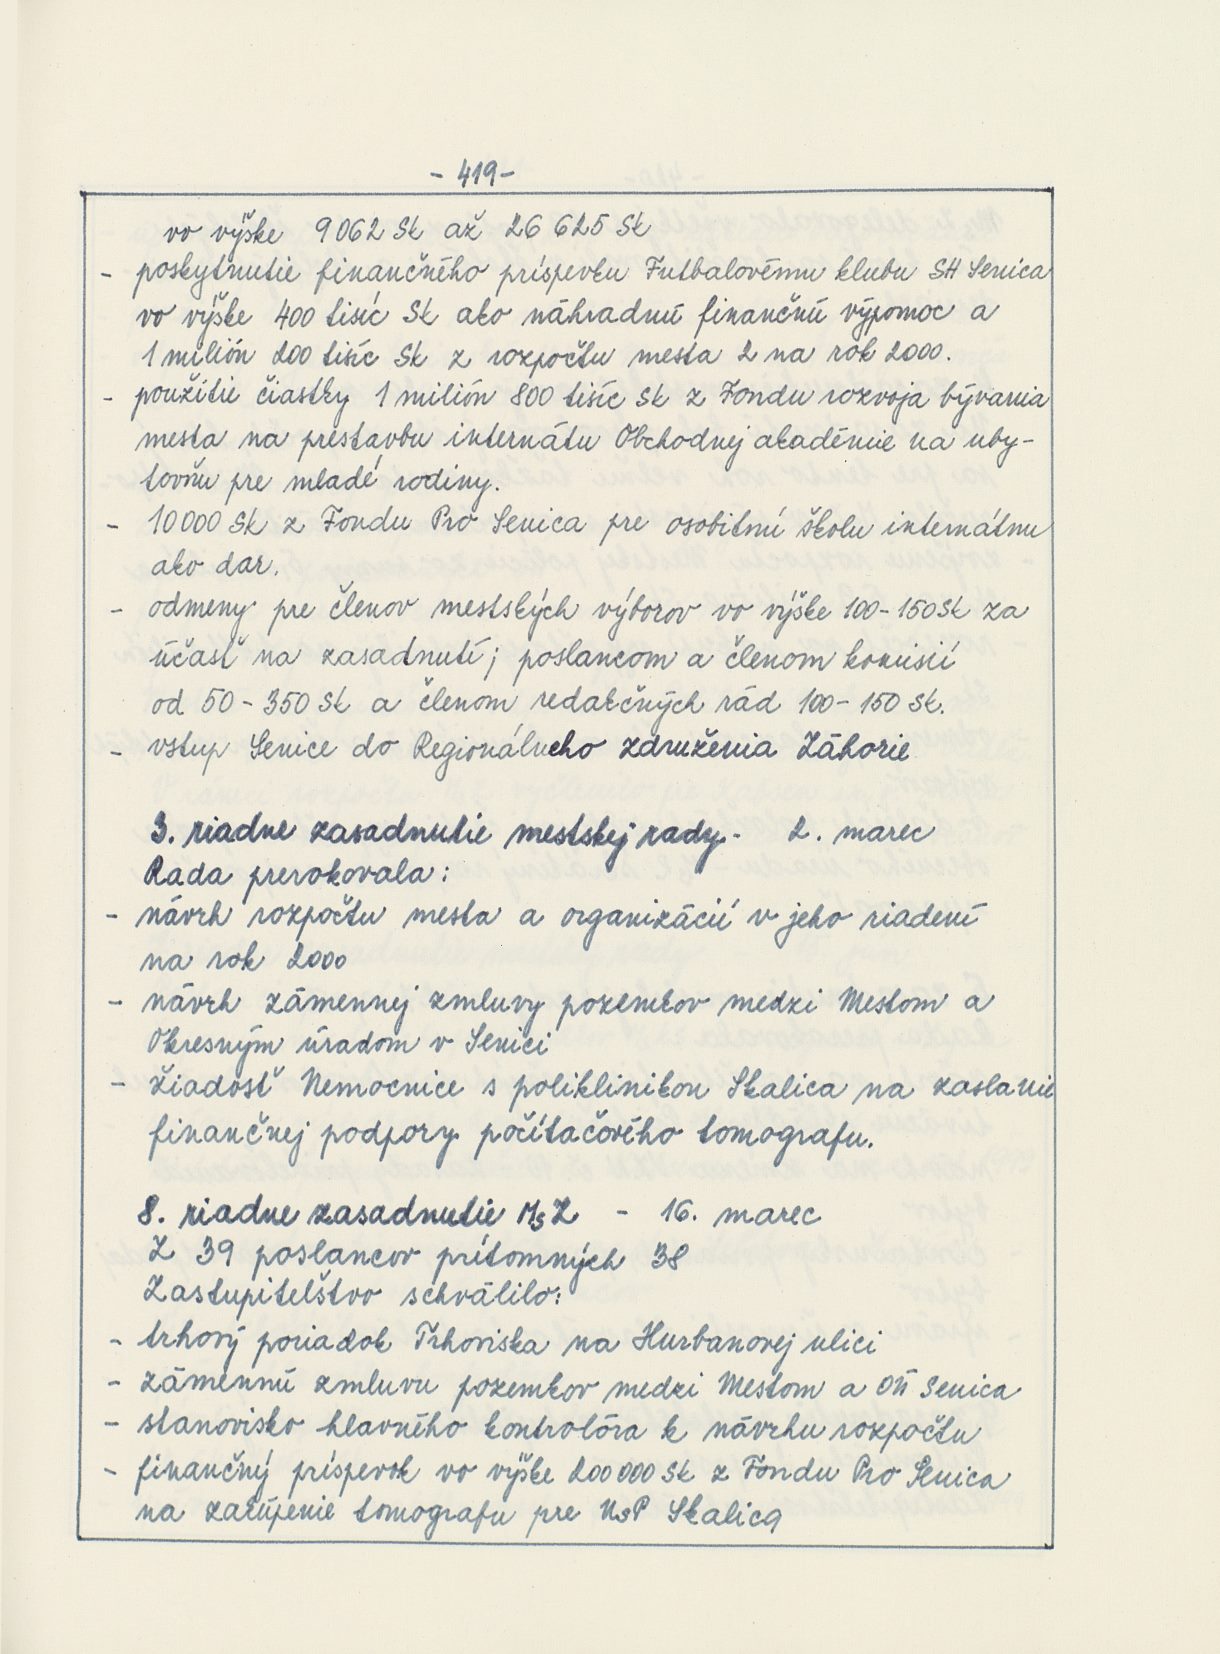 - 419 -
vo výške 9 062 Sk až 26 625 Sk
- poskytnutie finančného príspevku Futbalovému klubu SH Senica
vo výške 400 tisíc Sk ako náhradnú finančnú výpomoc a
1 milión 200 tisíc Sk z rozpočtu mesta 2 na rok 2000.
- použitie čiastky 1 milión 800 tisíc Sk z Fondu rozvoja bývania
mesta na prestavbu internátu Obchodnej akadémie na uby-
tovňu pre mladé rodiny.
- 10 000 Sk z Fondu Pro Senica pre osobitnú školu internátnu
ako dar.
- odmeny pre členov mestských výborov vo výške 100 - 150 Sk za
účasť na zasadnutí; poslancom a členom komisií
od 50 - 350 Sk a členom redakčných rád 100 - 150 Sk.
- vstup Senice do Regionálneho združenia Záhorie
3. riadne zasadnutie mestskej rady - 2. marec
Rada prerokovala:
- návrh rozpočtu mesta a organizácií v jeho riadení
na rok 2000
- návrh zámennej zmluvy pozemkov medzi Mestom a
Okresným úradom v Senici
- žiadosť Nemocnice s poliklinikou Skalica na zaslanie
finančnej podpory počítačového tomografu.
8. riadne zasadnutie MsZ - 16. marec
Z 39 poslancov prítomných 38
Zastupiteľstvo schválilo:
- trhový poriadok Trhoviska na Hurbanovej ulici
- zámennú zmluvu pozemkov medzi Mestom a OÚ Senica
- stanovisko hlavného kontrolóra k návrhu rozpočtu
- finančný príspevok vo výške 200 000 Sk z Fondu Pro Senica
na zakúpenie tomografu pre NsP Skalica